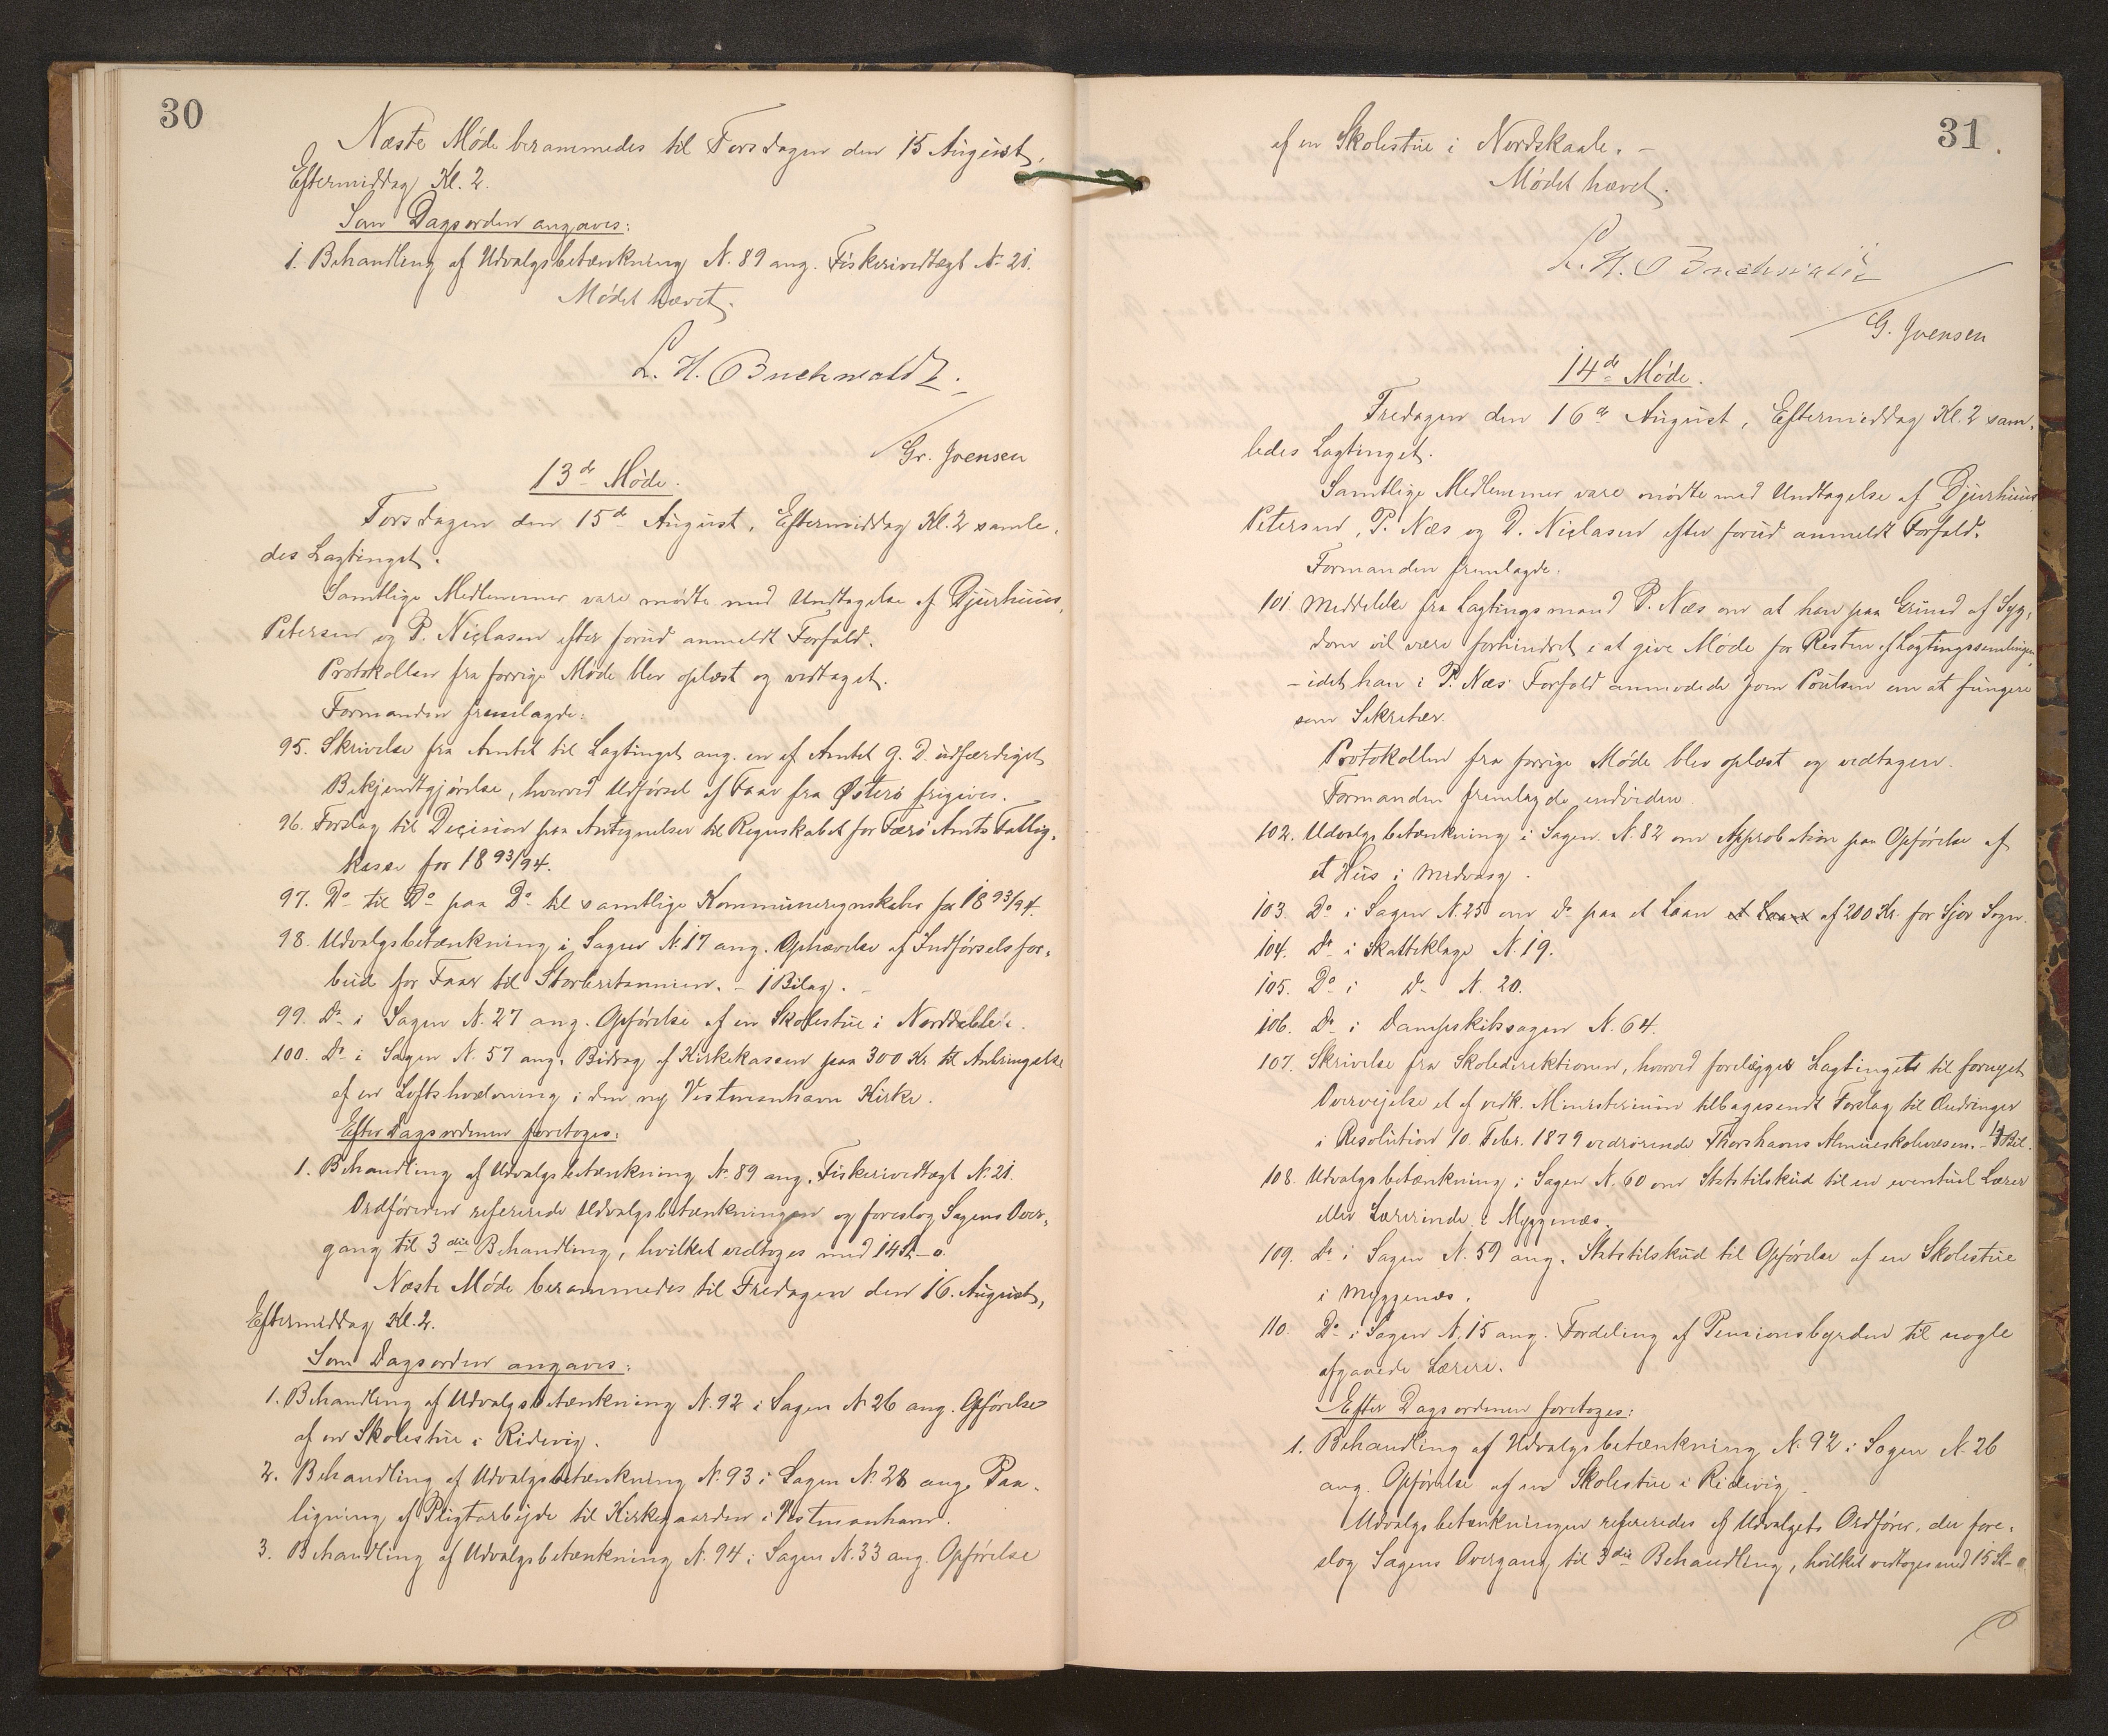 30
Næste Møde berammedes til Torsdagen den 15 August,
Eftermiddag Kl. 2.
Som Dagsorden angaves:
1. Behandling af Udvalgsbetænkning N. 89 ang. Fiskerivedtægt N. 21.
Mødet hævet.
L. H. Buchwaldt.
Gr. Joensen
13de Møde.
Torsdagen den 15de August, Eftermiddag Kl. 2 samle-
des Lagtinget.
Samtlige Medlemmer vare mødte med Undtagelse af Djurhuus,
Petersen og P. Niclasen efter forud anmeldt Forfald.
Protokollen fra forrige Møde blev oplæst og vedtaget.
Formanden fremlagde:
95. Skrivelse fra Amtet til Lagtinget ang. en af Amtet g. D. udfærdiget
Bekjendtgjørelse, hvorved Udførsel af Faar fra Østerø frigives.
96. Forslag til Decision paa Antegnelser til Regnskabet for Færø Amts Fattig-
kasse for 1893/94.
97. Do til Do paa Do til samtlige Kommuneregnskaber for 1893/94.
98. Udvalgsbetænkning i Sagen N. 17 ang. Ophævelse af Indførselsfor-
bud for Faar til Storbritannien. - 1 Bilag. -
99. Do i Sagen N. 27 ang. Opførelse af en Skolestue i Norddeble.
100. Do i Sagen N. 57 ang. Bidrag af Kirkekassen paa 300 Kr. til Anbringelse
af en Loftshvælvning i den ny Vestmanhavn Kirke.
Efter Dagsordenen foretoges:
1. Behandling af Udvalgsbetænkning N. 89 ang. Fiskerivedtægt N. 21.
Ordføreren refererede Udvalgsbetænkningen og foreslog Sagens Over-
gang til 3die Behandling, hvilket vedtoges med 14 St - 0.
Næste Møde berammedes til Fredagen den 16. August,
Eftermiddag Kl. 2.
Som Dagsorden angaves:
1. Behandling af Udvalgsbetænkning N. 92 i Sagen N. 26 ang. Opførelse
af en Skolestue i Ridevig.
2. Behandling af Udvalgsbetænkning N. 93 i Sagen N. 28 ang. Paa-
ligning af Pligtarbejde til Kirkegaarden i Vestmanhavn.
3. Behandling af Udvalgsbetænkning N. 94 i Sagen N. 33 ang. Opførelse
31.
af en Skolestue i Nordskaale. -
Mødet hævet.
L. H. Buchwaldt
G. Joensen
14de Møde.
Fredagen den 16de August, Eftermiddag Kl. 2 sam-
ledes Lagtinget.
Samtlige Medlemmer vare mødte med Undtagelse af Djurhuus
Petersen, P. Næs og D. Niclasen efter forud anmeldt Forfald.
Formanden fremlagde:
101. Meddelelse fra Lagtingsmand P. Næs om at han paa Grund af Syg-
dom vil være forhindret i at give Møde for Resten af Lagtingssamlingen,
- idet han i P. Næs' Forfald anmodede Joen Poulsen om at fungere
som Sekretær.
Protokollen fra forrige Møde blev oplæst og vedtagen.
Formanden fremlagde endvidere
102. Udvalgsbetænkning i Sagen N. 82 om Approbation paa Opførelse af
et Hus i Midvaag.
103. Do i Sagen N. 25 om Do paa et Laan et Laan af 200 Kr. for Sjov Sogn.
104. Do i Skatteklage N. 19.
105. Do i Do N. 20.
106. Do i Dampskibssagen N. 64.
107. Skrivelse fra Skoledirektionen, hvorved forelægges Lagtingets til fornyet
Overvejelse et af vedk. Ministerium tilbagesendt Forslag til Ændringer
i Resolution 10. Febr. 1879 vedrørende Thorshavns Almueskolevæsen. - 4 Bil.
108. Udvalgsbetænkning i Sagen N. 60 om Statstilskud til en eventuel Lærer
eller Lærerinde i Myggenæs.
109. Do i Sagen N. 59 ang. Statstilskud til Opførelse af en Skolestue
i Myggenæs.
110. Do i Sagen N. 15 ang. Fordeling af Pensionsbyrden til nogle
afgaaede Lærere.
Efter Dagsordenen foretoges:
1. Behandling af Udvalgsbetænkning N. 92 i Sagen N. 26
ang. Opførelse af en Skolestue i Ridevig.
Udvalgsbetænkningen refereredes af Udvalgets Ordfører, der fore-
slog Sagens Overgang til 3die Behandling, hvilket vedtoges med 15 St - 0.